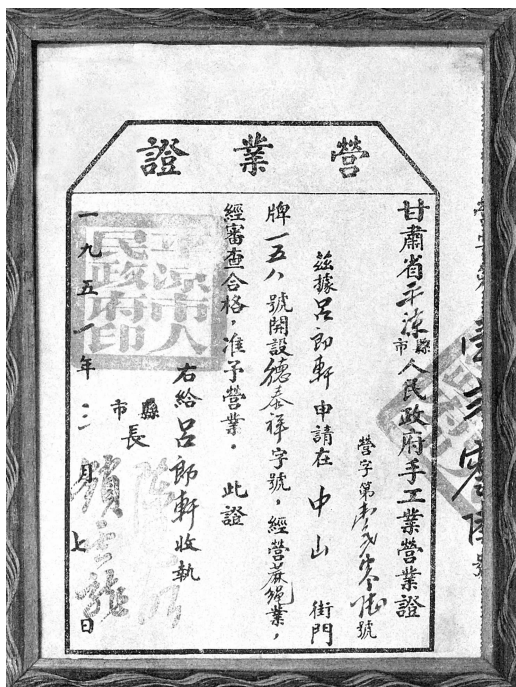 營業證
甘肅省平涼縣市人民政府手工業營業證
營字第壹弍零陸號
茲據呂郎軒申請在中山街門
牌一五八號開設德泰祥字號，經營蔴繩業，
經審查合格，准予營業。此證
右給呂郎軒收執
縣市長
一九五一年三月七日
平涼市人民政府印